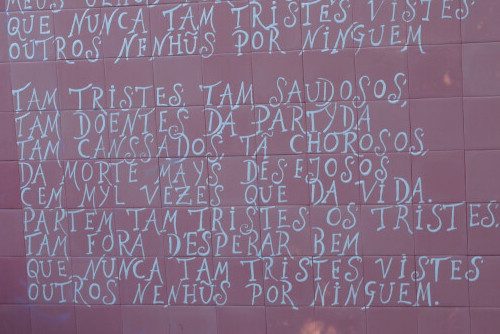 MEUS
QUE NUNCA TAM TRISTES VISTES
OUTROS NENHŨS POR NINGUEM
TAM TRISTES, TAM SAUDOSOS,
TAM DOENTES DA PARTYDA
TAM CANSSADOS, TÃ CHOROSOS
DA MORTE MAYS DESEJOSOS
CEM MYL VEZES QUE DA VIDA.
PARTEM TAM TRISTES OS TRISTES,
TAM FORA DESPERAR BEM
QUE NUNCA TAM TRISTES VISTES
OUTROS NENHŨS POR NINGUEM.